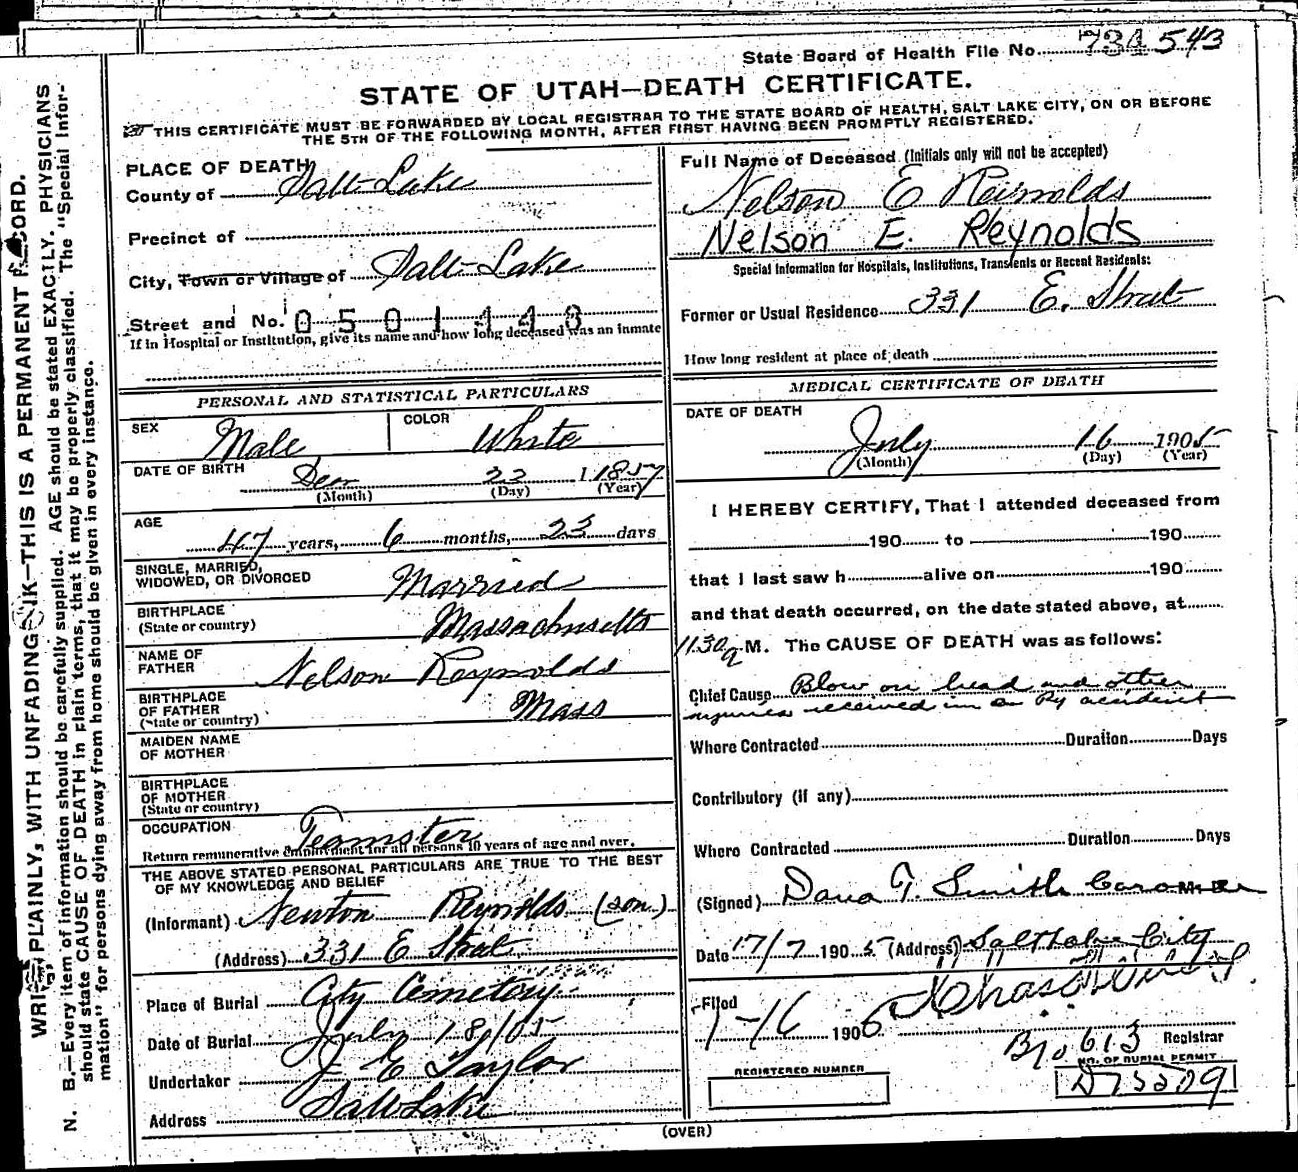 State Board of Health File No. 734 543
STATE OF UTAH—DEATH CERTIFICATE.
THIS CERTIFICATE MUST BE FORWARDED BY LOCAL REGISTRAR TO THE STATE BOARD OF HEALTH, SALT LAKE CITY, ON OR BEFORE
THE 5TH OF THE FOLLOWING MONTH, AFTER FIRST HAVING BEEN PROMPTLY REGISTERED.
WRITE PLAINLY, WITH UNFADING INK—THIS IS A PERMANENT RECORD.
N. B.—Every item of information should be carefully supplied. AGE should be stated EXACTLY. PHYSICIANS
should state CAUSE OF DEATH in plain terms, that it may be properly classified. The "Special Infor-
mation" for persons dying away from home should be given in every instance.
PLACE OF DEATH
County of Salt Lake
Precinct of
City, Town or Village of Salt Lake
Street and No. 0501448
If in Hospital or Institution, give its name and how long deceased was an inmate
PERSONAL AND STATISTICAL PARTICULARS
SEX Male COLOR White
DATE OF BIRTH Dec 23 1 1857
(Month) (Day) (Year)
AGE
47 years, 6 months, 23 days
SINGLE, MARRIED,
WIDOWED, OR DIVORCED Married
BIRTHPLACE
(State or country) Massachusetts
NAME OF
FATHER Nelson Reynolds
BIRTHPLACE
OF FATHER Mass
(State or country)
MAIDEN NAME
OF MOTHER
BIRTHPLACE
OF MOTHER
(State or country)
OCCUPATION Teamster
Return remunerative employment for all persons 10 years of age and over.
THE ABOVE STATED PERSONAL PARTICULARS ARE TRUE TO THE BEST
OF MY KNOWLEDGE AND BELIEF
(Informant) Newton Reynolds (son)
(Address) 331 E Street
Place of Burial City Cemetery
Date of Burial July 18/05
Undertaker J E Taylor
Address Salt Lake
Full Name of Deceased (Initials only will not be accepted)
Nelson E Reinolds
Nelson E. Reynolds
Special Information for Hospitals, Institutions, Transients or Recent Residents:
Former or Usual Residence 331 E. Street
How long resident at place of death
MEDICAL CERTIFICATE OF DEATH
DATE OF DEATH
July 16 1905
(Month) (Day) (Year)
I HEREBY CERTIFY, That I attended deceased from
190 to 190
that I last saw h alive on 190
and that death occurred, on the date stated above, at
11.30 a M. The CAUSE OF DEATH was as follows:
Chief Cause Blow on head and other
injuries received in a Ry accident
Where Contracted Duration Days
Contributory (if any)
Where Contracted Duration Days
(Signed) Dana T. Smith Coroner M.D.
Date 17/7 1905 (Address) Salt Lake City
Filed
1-16 1906
Registrar
613
NO. OF BURIAL PERMIT
REGISTERED NUMBER
D75509
(OVER)